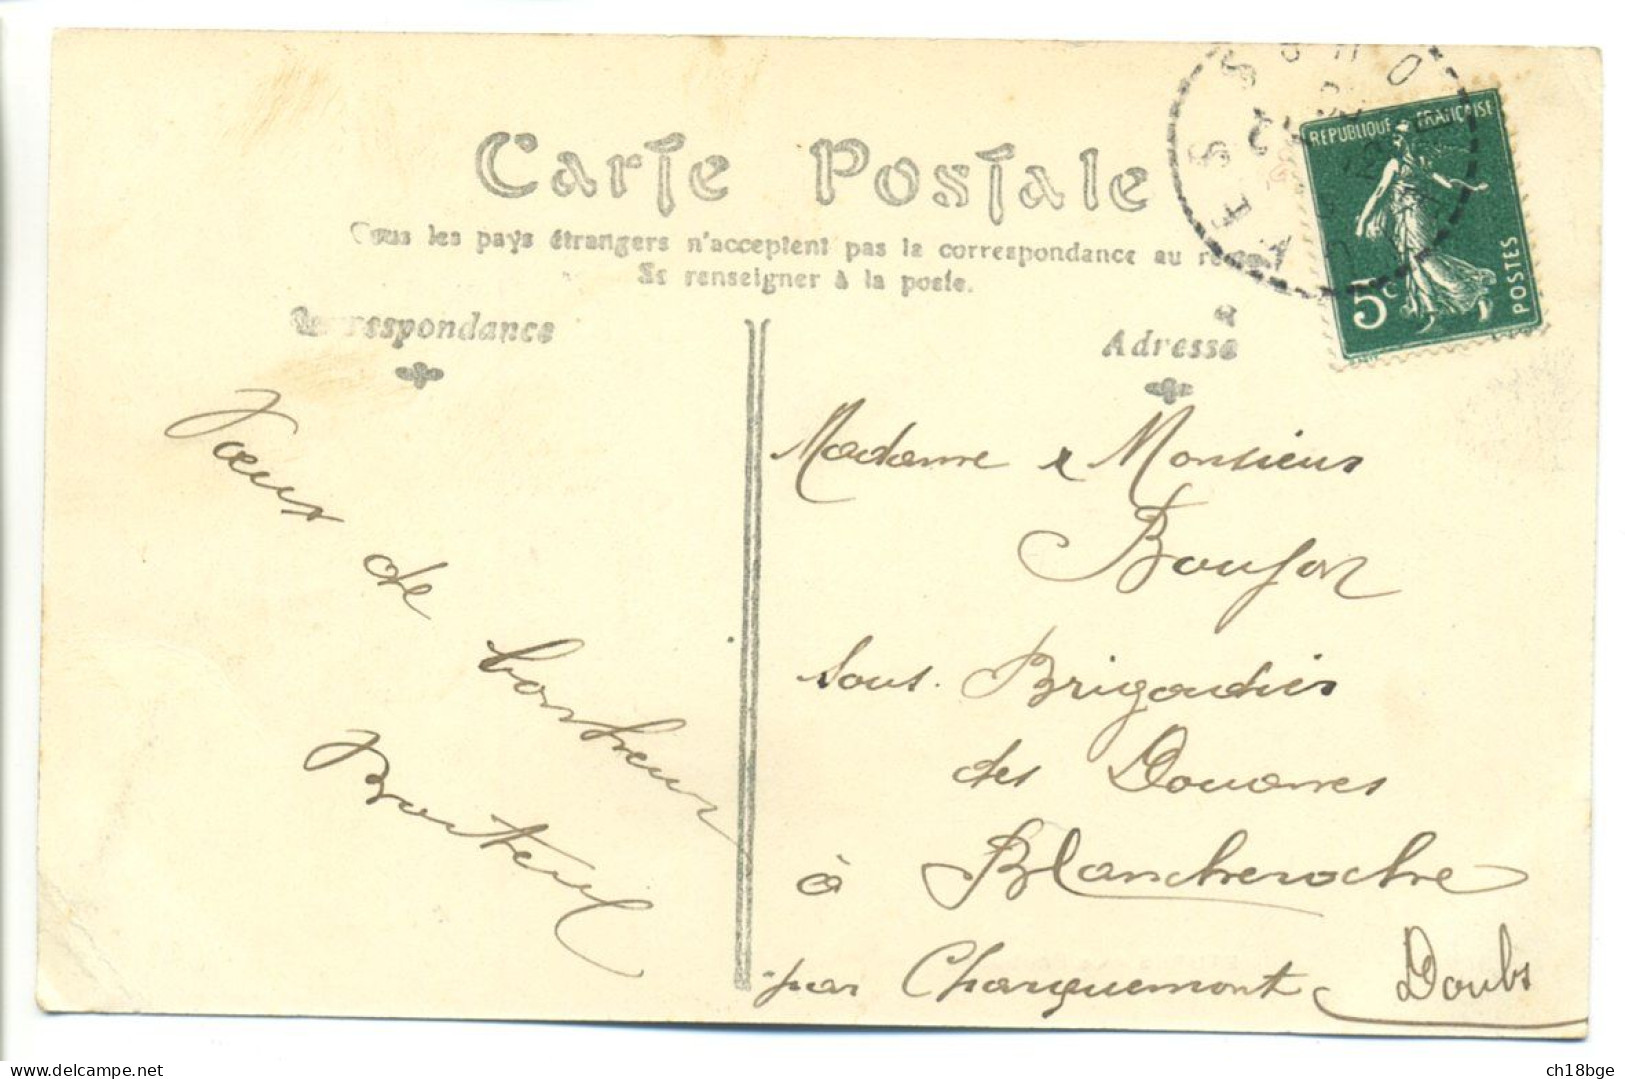 Carte Postale
Tous les pays étrangers n'acceptent pas la correspondance au recto
Se renseigner à la poste.
Correspondance
Adresse
REPUBLIQUE FRANÇAISE
5c
POSTES
Vœux
de
bonheur
Madame & Monsieur
Boujon
Sous. Brigadier
des Douanes
à Blancheroche
par Charquemont Doubs
delcampe.net
ch18bge